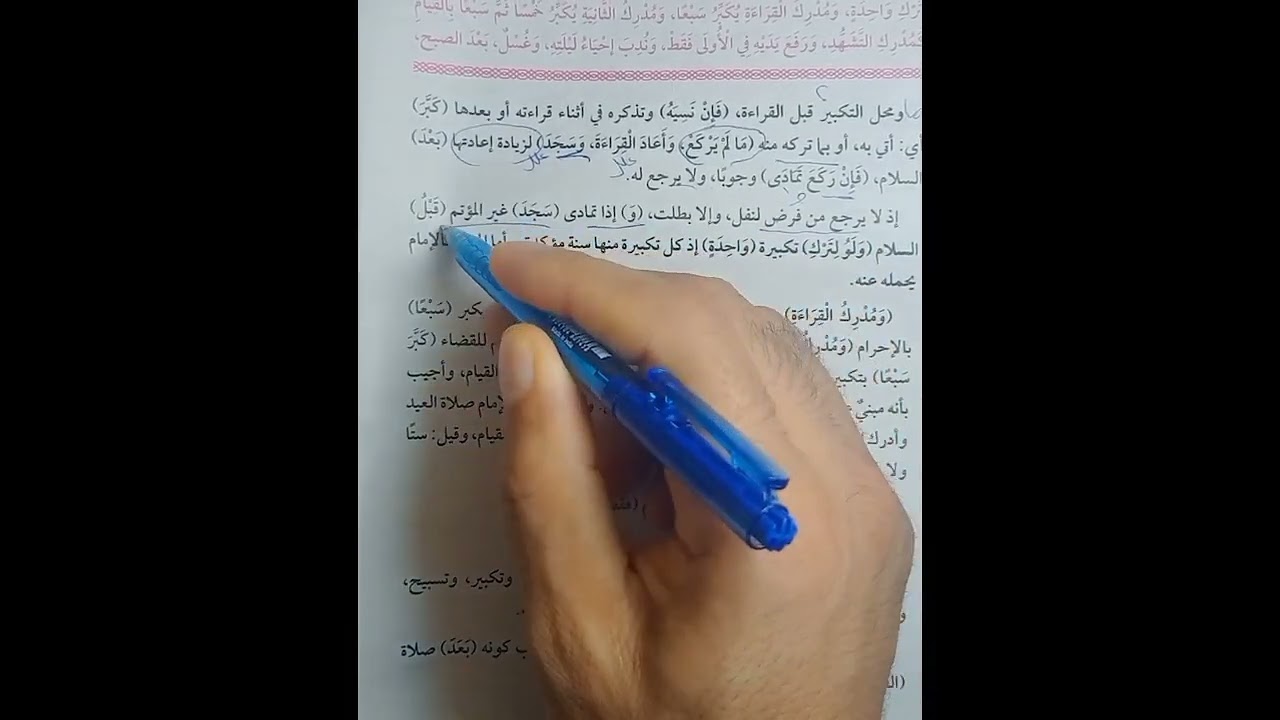 تَرْكِ وَاحِدَةٍ، وَمُدْرِكُ الْقِرَاءَةِ يُكَبِّرُ سَبْعًا، وَمُدْرِكُ الثَّانِيَةِ يُكَبِّرُ خَمْسًا ثُمَّ سَبْعًا بِالْقِيَامِ
كَمُدْرِكِ التَّشَهُّدِ، وَرَفَعَ يَدَيْهِ فِي الْأُولَى فَقَطْ، وَنُدِبَ إِحْيَاءُ لَيْلَتِهِ، وَغُسْلٌ، بَعْدَ الصبح،
ومحل التكبير قبل القراءة، (فَإِنْ نَسِيَهُ) وتذكره في أثناء قراءته أو بعدها (كَبَّرَ)
أي: أتي به، أو بما تركه منه (مَا لَمْ يَرْكَعْ، وَأَعَادَ الْقِرَاءَةَ، وَسَجَدَ) لزيادة إعادتها (بَعْدَ)
السلام، (فَإِنْ رَكَعَ تَمَادَى) وجوبًا، ولا يرجع له.
إذ لا يرجع من فرض لنفل، وإلا بطلت، (وَ) إذا تمادى (سَجَدَ) غير المؤتم (قَبْلُ)
السلام (وَلَوْ لِتَرْكِ) تكبيرة (وَاحِدَةٍ) إذ كل تكبيرة منها سنة
يحمله عنه.
(وَمُدْرِكُ الْقِرَاءَةِ) يكبر (سَبْعًا)
بالإحرام للقضاء (كَبَّرَ
سَبْعًا) القيام، وأجيب
بأنه مبنيٌ صلاة العيد
وأدرك وقيل: ستًا
ولا
وتكبير، وتسبيح،
كونه (بَعْدَ) صلاة